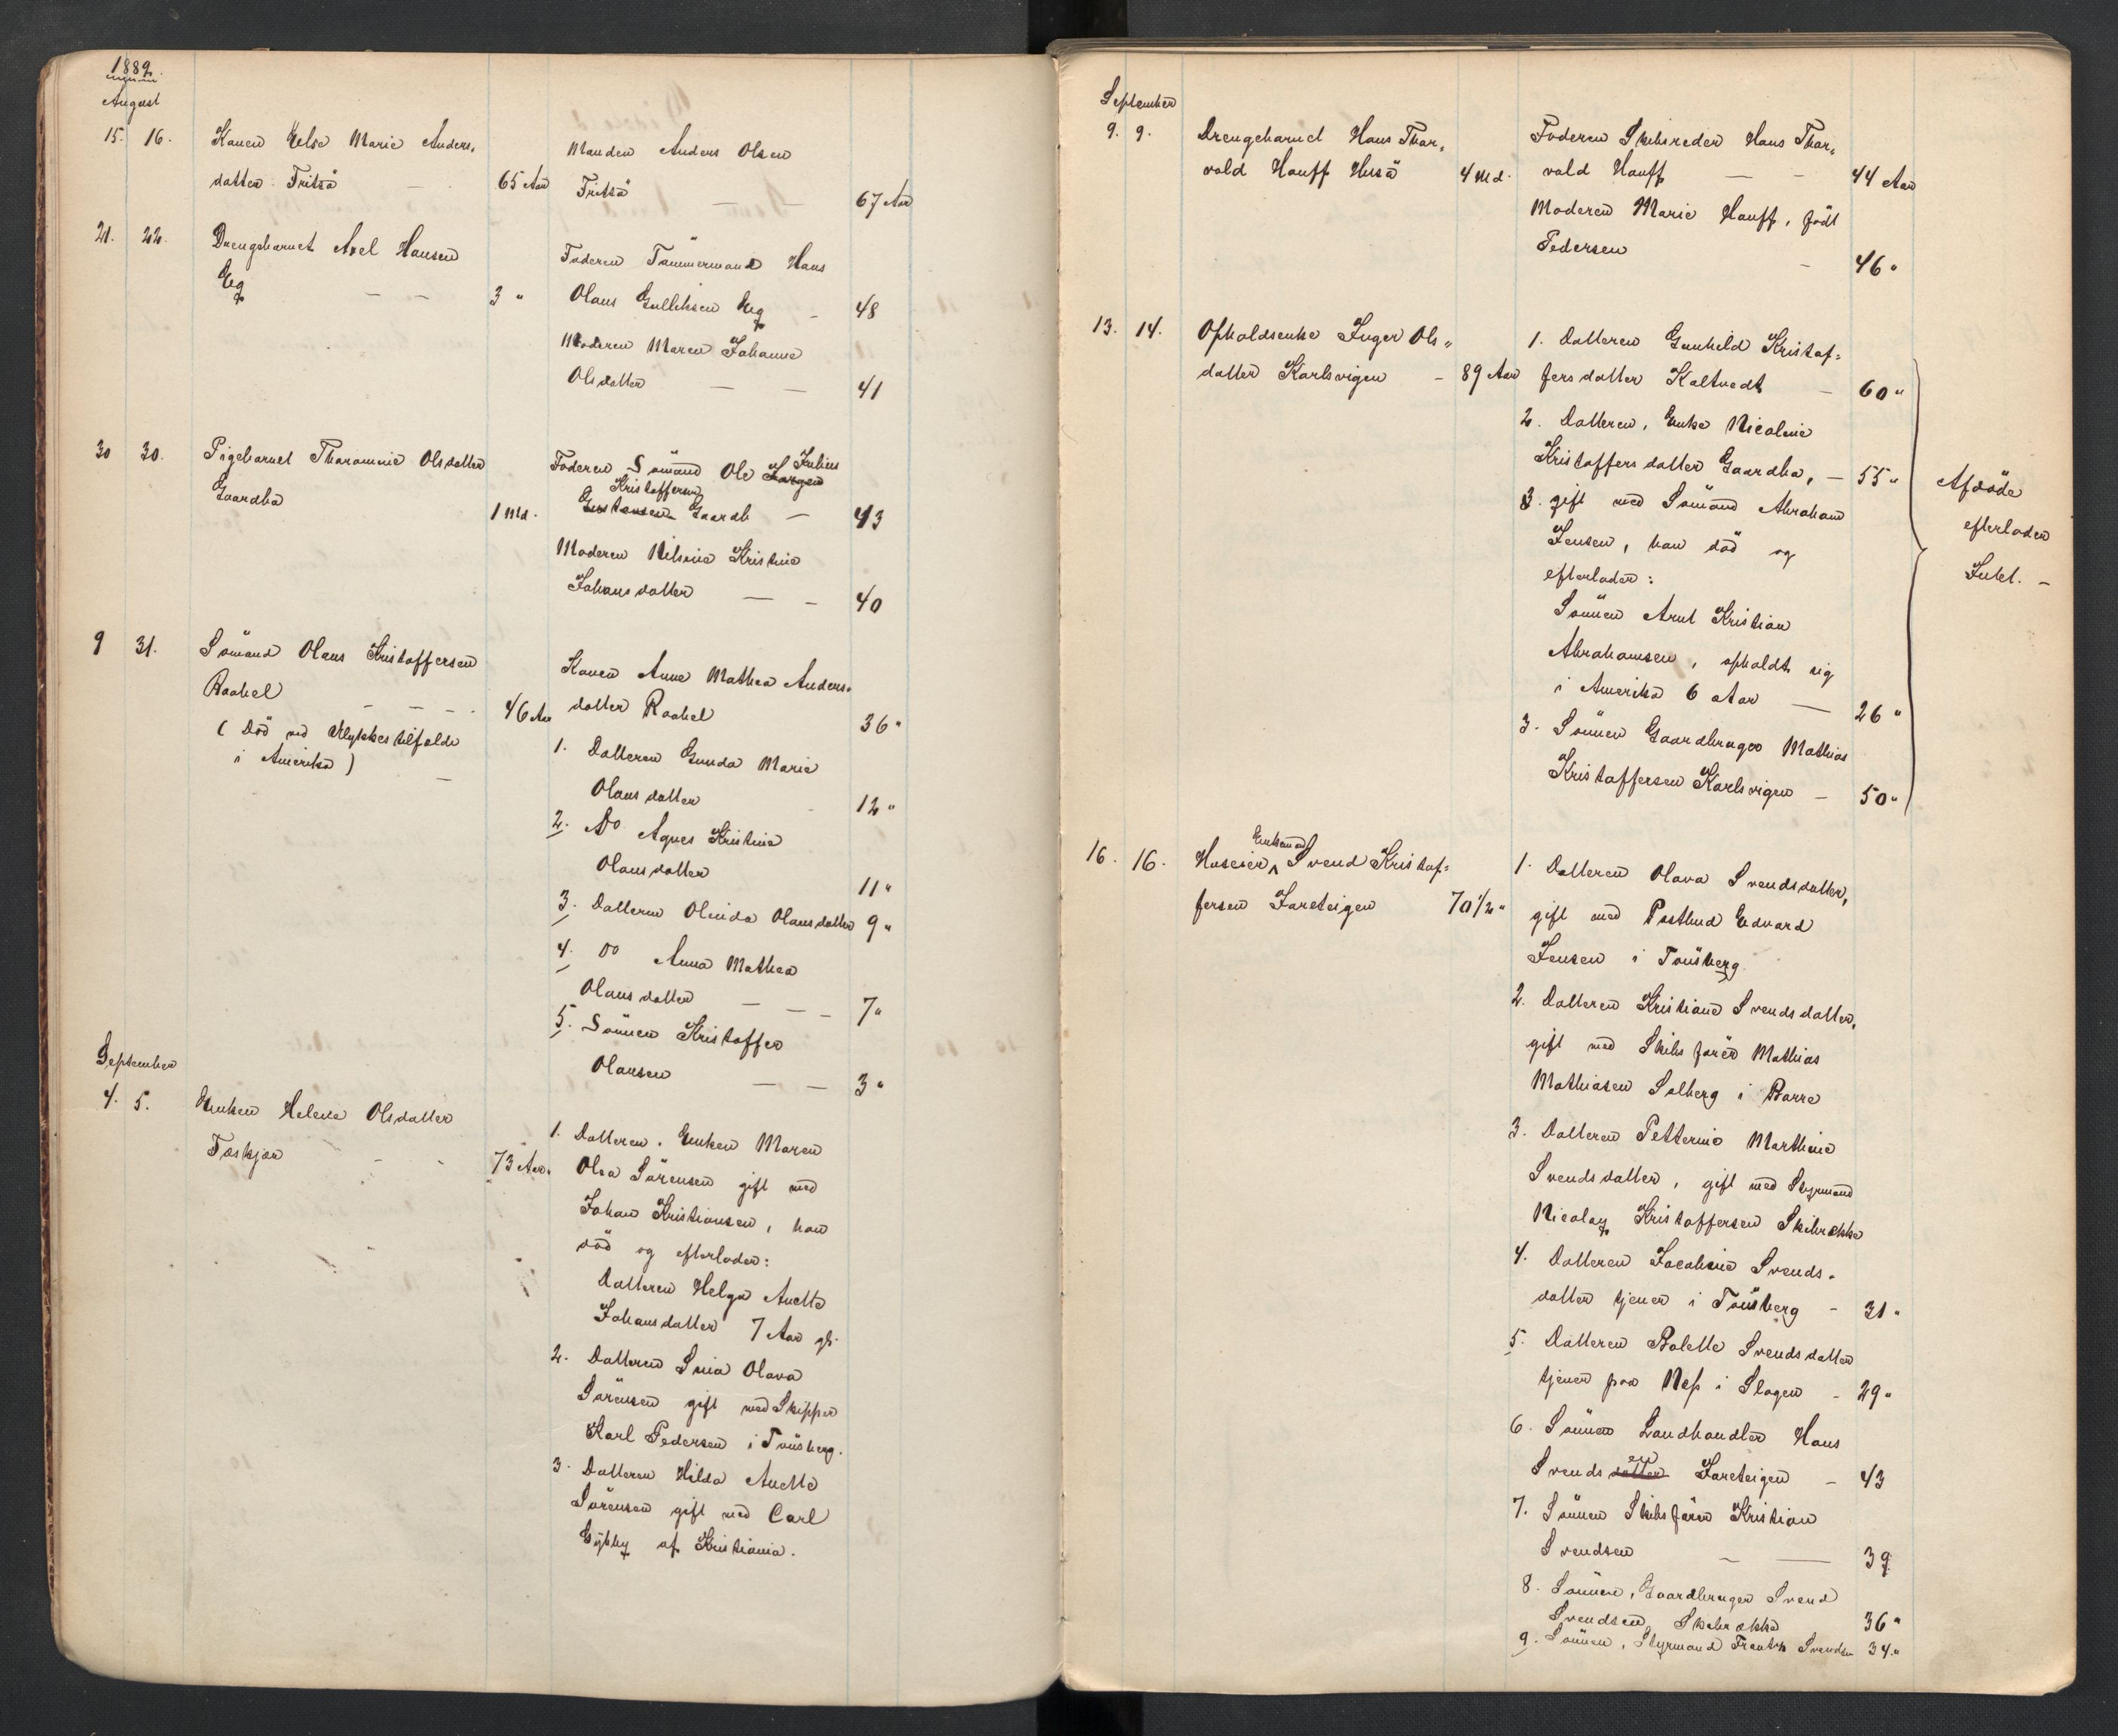 1889.
August
15. 16. Konen Else Marie Anders-
datter Fritsö — 65 Aar
Manden Anders Olsen
Fritsö — — 67 Aar
21. 22. Drengebarnet Axel Hansen
Eeg — — 3 "
Faderen Tömmermand Hans
Olaus Gulliksen Eeg — 48
Moderen Maren Johanne
Olsdatter — — 41
30 30. Pigebarnet Thoramine Olsdatter
Gaardbo 1 Md.
Faderen Sömand Ole Julius
Kristoffersen
Gustavsen Gaardb — 43
Moderen Nilsine Kristine
Johansdatter — — 40
9 31. Sömand Olaus Kristoffersen
Raabel — — — 46 Aar
( Död ved Ulykkestilfælde
i Amerika ) —
Konen Anne Mathea Anders-
datter Raabel 36 "
1. Datteren Gunda Marie
Olausdatter 12 "
2. Do Agnes Kristine
Olausdatter 11 "
3. Datteren Olinda Olausdatter 9 "
4. Do Anna Mathea
Olausdatter — — — 7 "
5. Sönnen Kristoffer
Olausen — — 3 "
September
4. 5. Enken Helene Olsdatter
Toskjær — - 73 Aar.
1. Datteren, Enken Maren
Olea Sörensen gift med
Johan Kristiansen, han
död og efterlader:
Datteren Helga Anette
Johansdatter 7 Aar gl.
2. Datteren Sina Olava
Sörensen gift med Skipper
Karl Pedersen i Tönsberg.
3. Datteren Hilda Anette
Sörensen gift med Carl
af Kristiania.
September
9. 9. Drengebarnet Hans Thor-
vald Hauff Husö 4 Md.
Faderen Skibsreder Hans Thor-
vald Hauff — - 44 Aar
Moderen Marie Hauff, född
Pedersen - 46 "
13. 14. Opholdsenke Inger Ols-
datter Karlsvigen - 89 Aar
1. Datteren Gunhild Kristof-
fersdatter Kaltvedt — 60 "
2. Datteren, Enke Nicoline
Kristoffersdatter Gaardbo, — 55 "
3. gift med Sömand Abraham
Jensen, han död og
efterlader:
Sönnen Arnt Kristian
Abrahamsen, opholdt sig
i Amerika 6 Aar — 26 "
3. Sönnen Gaardbruger Mathias
Kristoffersen Karlsvigen — 50 "
Afdöde
efterlader
Intet. —
16. 16. Huseier Enkemand Svend Kristof-
fersen Jareteigen 70 1/2 "
1. Datteren Olava Svendsdatter,
gift med Postbud Edvard
Jensen i Tönsberg
2. Datteren Kristiane Svendsdatter,
gift med Skibsförer Mathias
Mathiasen Solberg i Borre
3. Datteren Petterine Marthine
Svendsdatter, gift med Styrmand
Nicolay Kristoffersen Skibrække
4. Datteren Jacobine Svends-
datter tjener i Tönsberg - 31 "
5. Datteren Bolette Svendsdatter
tjener paa Næs i Slagen - 29 "
6. Sönnen Landhandler Hans
Svendsdatter en Jareteigen - 43
7. Sönnen Skibsförer Kristian
Svendsen — — 39
8. Sönnen, Gaardbruger Svend
Svendsen, Skibrække 36 "
9. Sönnen, Styrmand Frantz Svendsen 34. "